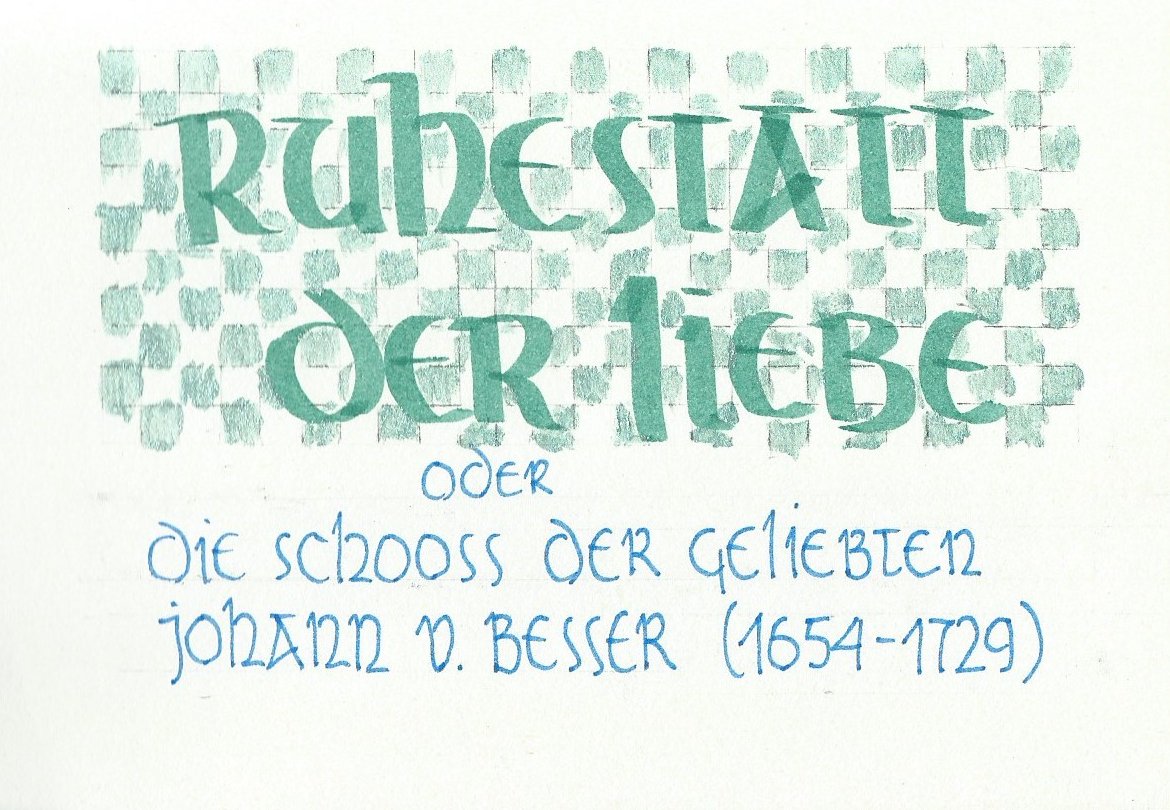 Ruhestatt
der Liebe
oder
die Schooss der Geliebten
Johann v. Besser (1654-1729)